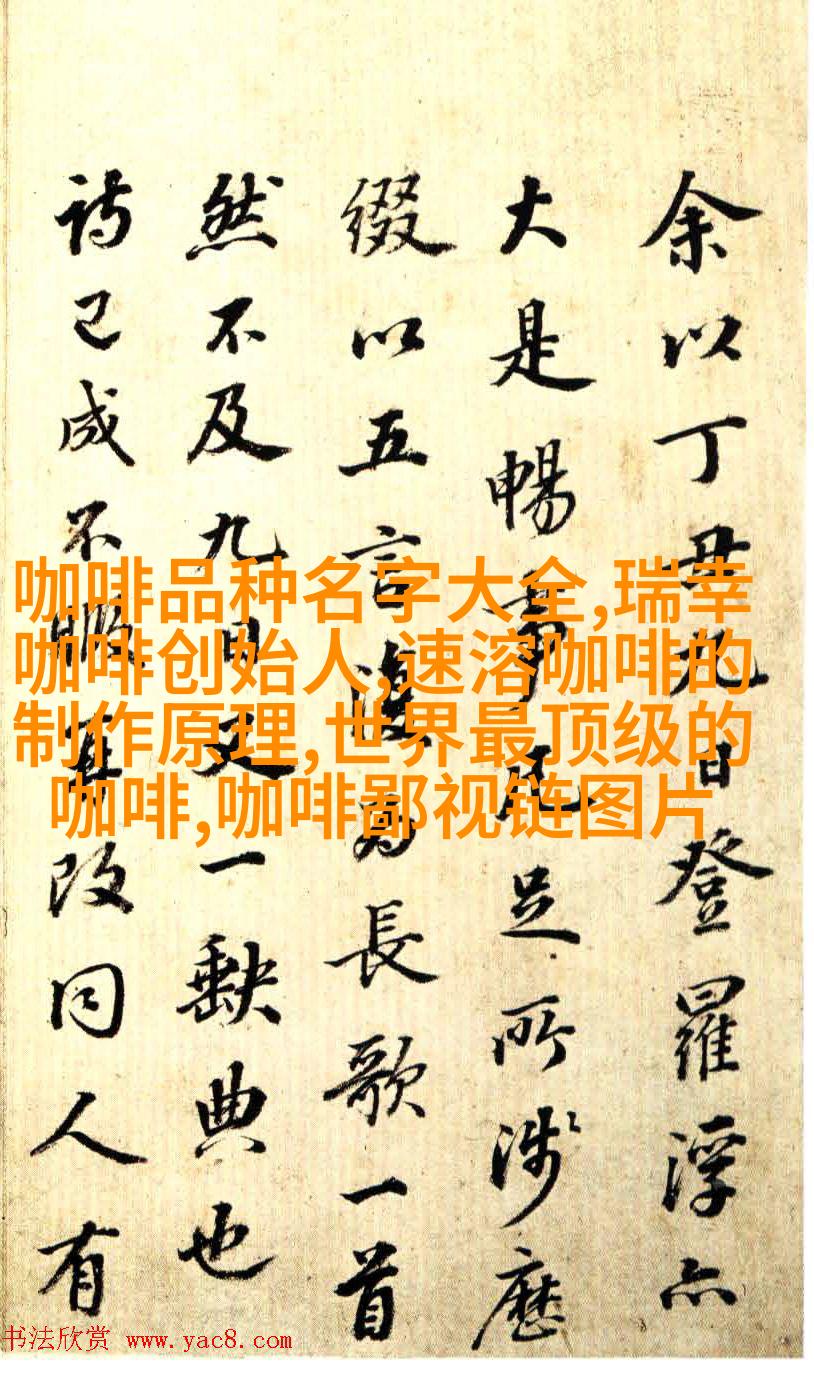 余以丁丑九日登羅浮亦
大是暢事凡足所涉歷
綴以五言復为長歌一首
然不及九日又一缺典也
詩已成不暇再改同人有
咖啡品种名字大全,瑞幸
咖啡创始人,速溶咖啡的
制作原理,世界最顶级的
咖啡,咖啡鄙视链图片
书法欣赏 www.yac8.com